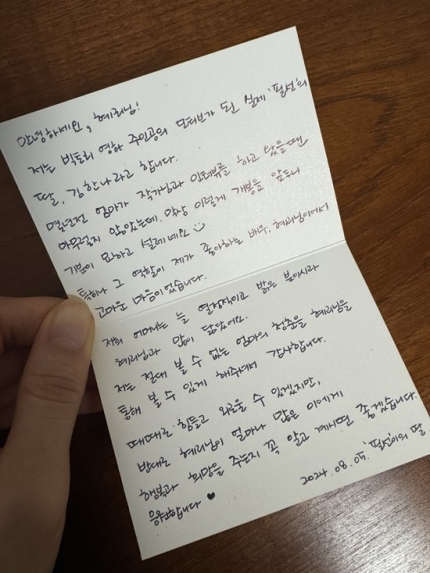 안녕하세요, 혜리님!
저는 빅토리 영화 주인공의 모티브가 된 실제 '필선'의
딸, 김한나라고 합니다.
몇년전 엄마가 작가님과 인터뷰를 하고 왔을때만
아무렇지 않았는데, 막상 이렇게 개봉을 앞두니
기분이 묘하고 설레네요
특히나 그 역할이 제가 좋아하는 배우, 혜리님이어서
고마운 마음이었습니다.
저희 어머니는 늘 열정적이고 밝은 분이시라
혜리님과 많이 닮았어요.
저는 절대 볼 수 없는 엄마의 청춘을 혜리님을
통해 볼 수 있게 해주셔서 감사합니다.
때때로 힘들고 외로울 수 있겠지만,
반대로 혜리님이 얼마나 많은 이에게
행복과 희망을 주는지 꼭 알고 계시면 좋겠습니다.
응원합니다 ♥
2024. 08. 05. '필선'이의 딸